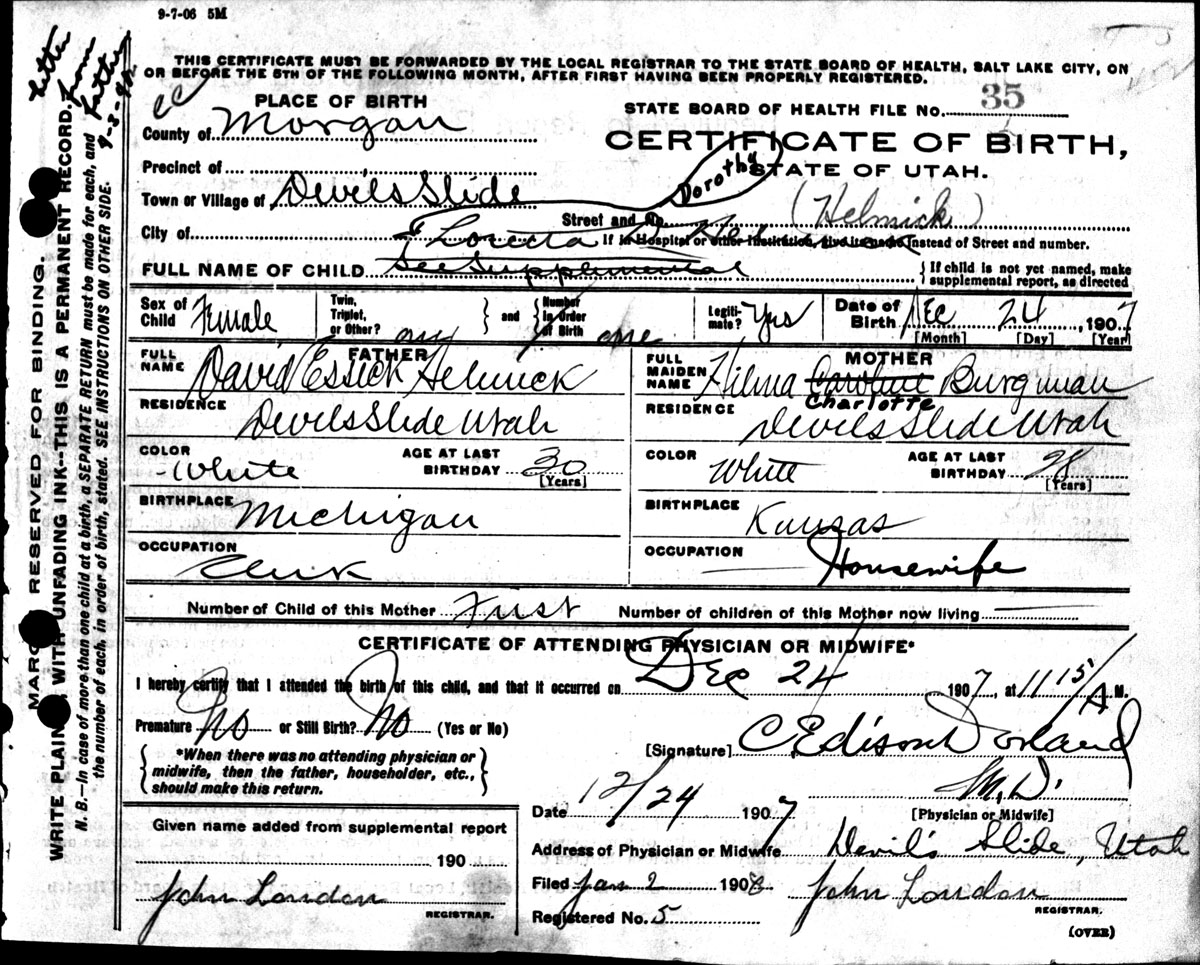 9-7-06 5M
THIS CERTIFICATE MUST BE FORWARDED BY THE LOCAL REGISTRAR TO THE STATE BOARD OF HEALTH, SALT LAKE CITY, ON
OR BEFORE THE 5TH OF THE FOLLOWING MONTH, AFTER FIRST HAVING BEEN PROPERLY REGISTERED.
PLACE OF BIRTH
County of Morgan
Precinct of
Town or Village of Devils Slide
City of
STATE BOARD OF HEALTH FILE No. 35
CERTIFICATE OF BIRTH,
STATE OF UTAH.
Dorothy
Street and No. (Helmick)
If in Hospital or other Institution, give its name instead of Street and number.
FULL NAME OF CHILD See Supplemental
Loreta
If child is not yet named, make
supplemental report, as directed
Sex of Child Female
Twin, Triplet, or Other? and Number in Order of Birth one
Legitimate? Yes
Date of Birth Dec 24, 1907
[Month] [Day] [Year]
FATHER
FULL NAME David Essick Helmick
RESIDENCE Devils Slide Utah
COLOR White
AGE AT LAST BIRTHDAY 30 [Years]
BIRTHPLACE Michigan
OCCUPATION Clerk
MOTHER
FULL MAIDEN NAME Hilma Caroline Burgman
Charlotte
RESIDENCE Devils Slide Utah
COLOR White
AGE AT LAST BIRTHDAY 28 [Years]
BIRTHPLACE Kansas
OCCUPATION Housewife
Number of Child of this Mother First Number of children of this Mother now living
CERTIFICATE OF ATTENDING PHYSICIAN OR MIDWIFE*
I hereby certify that I attended the birth of this child, and that it occurred on Dec 24 1907, at 11 15/A M.
Premature No or Still Birth? No (Yes or No)
*When there was no attending physician or
midwife, then the father, householder, etc.,
should make this return.
[Signature] C Edison Dorland
M.D.
[Physician or Midwife]
Date 12/24 1907
Address of Physician or Midwife Devil's Slide, Utah
Filed Jan 2 1908 John London
REGISTRAR.
Registered No. 5
(OVER)
Given name added from supplemental report
190
John London
REGISTRAR.
MARGIN RESERVED FOR BINDING.
WRITE PLAINLY WITH UNFADING INK--THIS IS A PERMANENT RECORD.
N. B.—In case of more than one child at a birth, a SEPARATE RETURN must be made for each, and
the number of each, in order of birth, stated. SEE INSTRUCTIONS ON OTHER SIDE.
letter
from
father